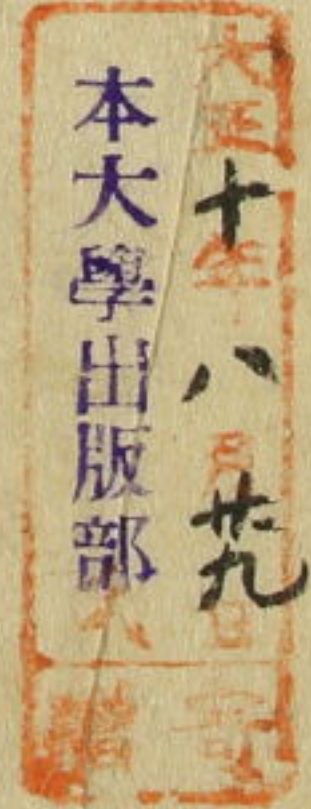 大正十年八月廿九日
本大學出版部
寄贈